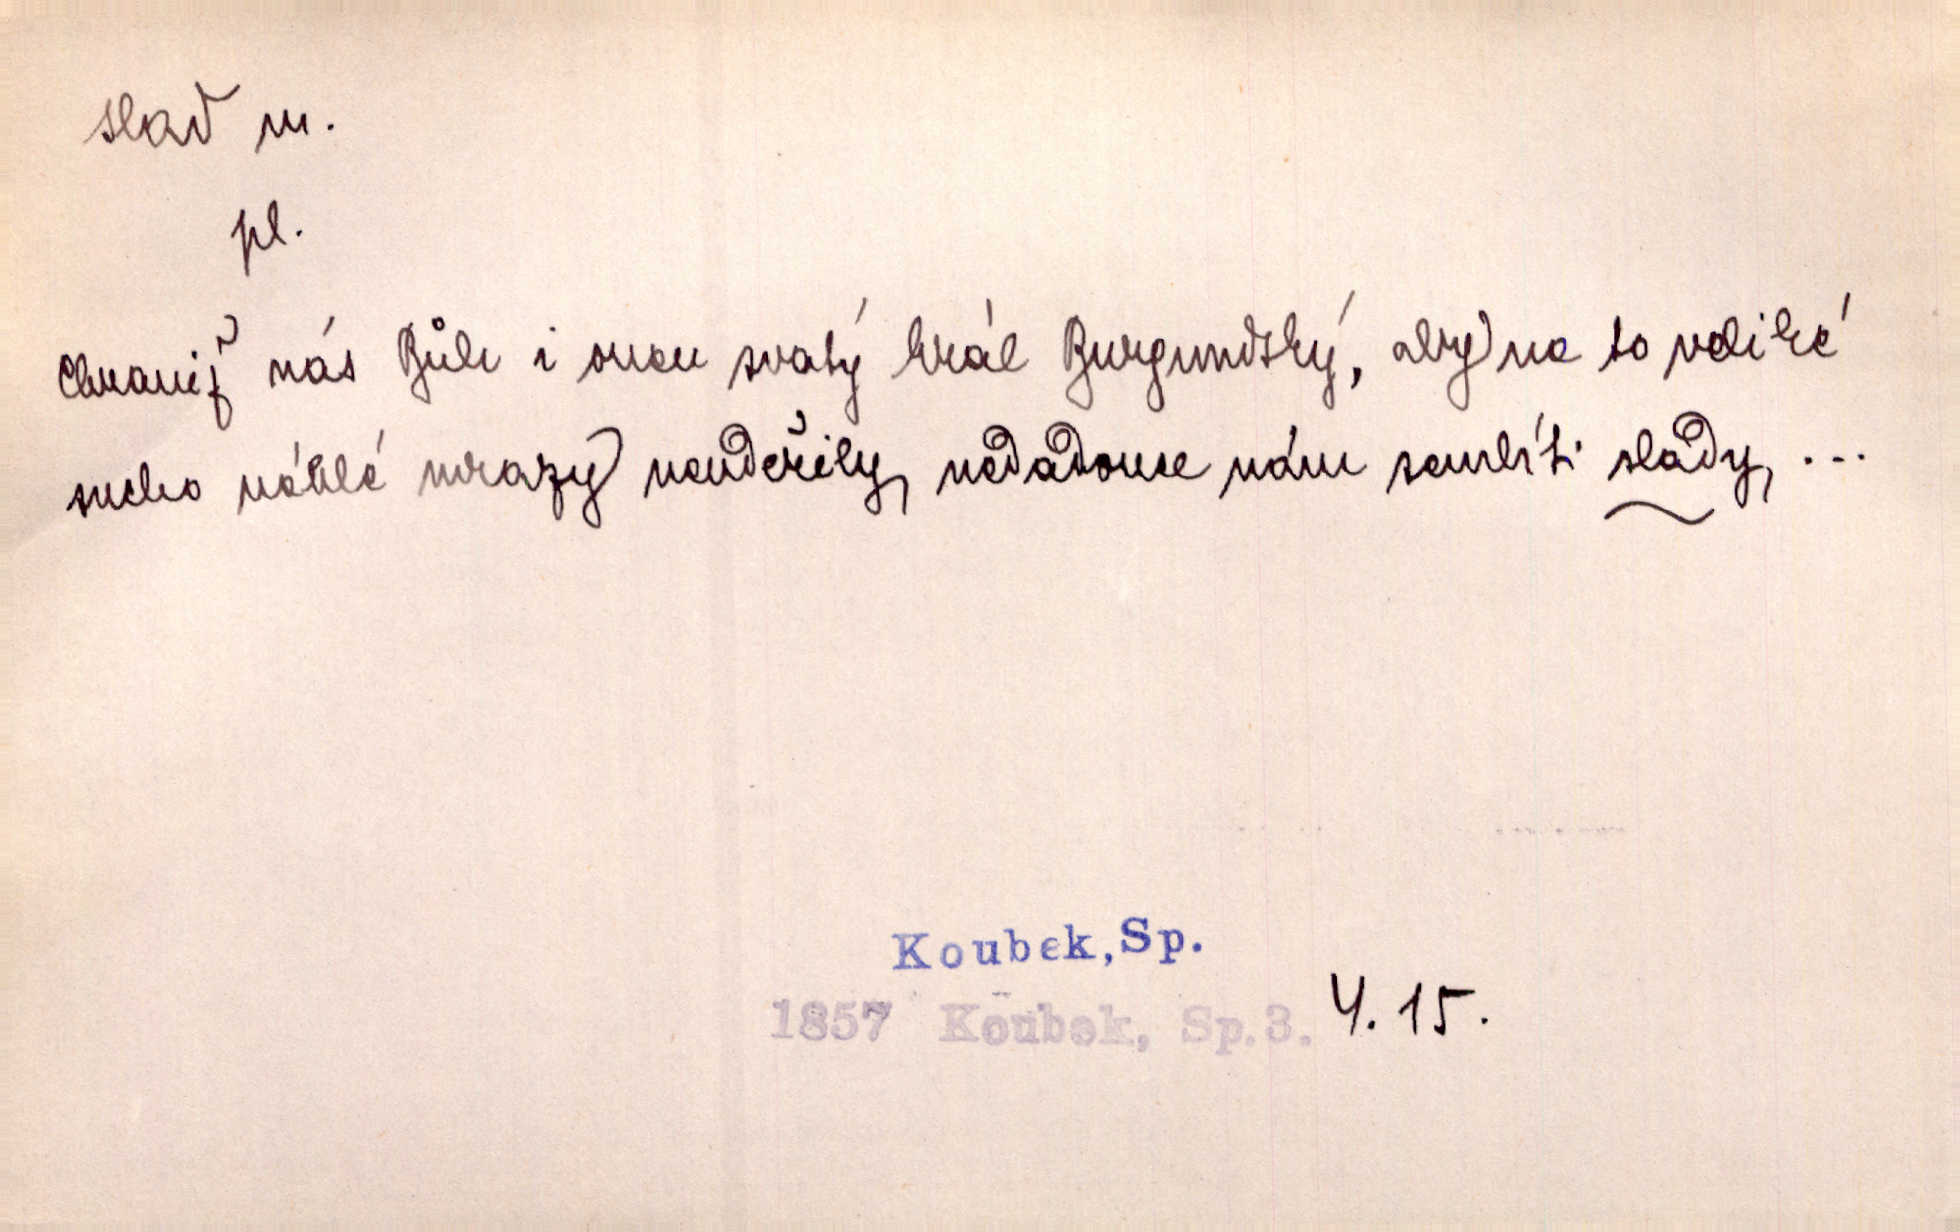 slad m.
pl.
Chraniž nás Bůh i onen svatý král Burgundský, aby na to veliké
sucho náhlé mrazy neudeřily, nedadouce nám semlíti slady, ...
Koubek, Sp.
1857 Koubek, Sp.3. 4. 15.